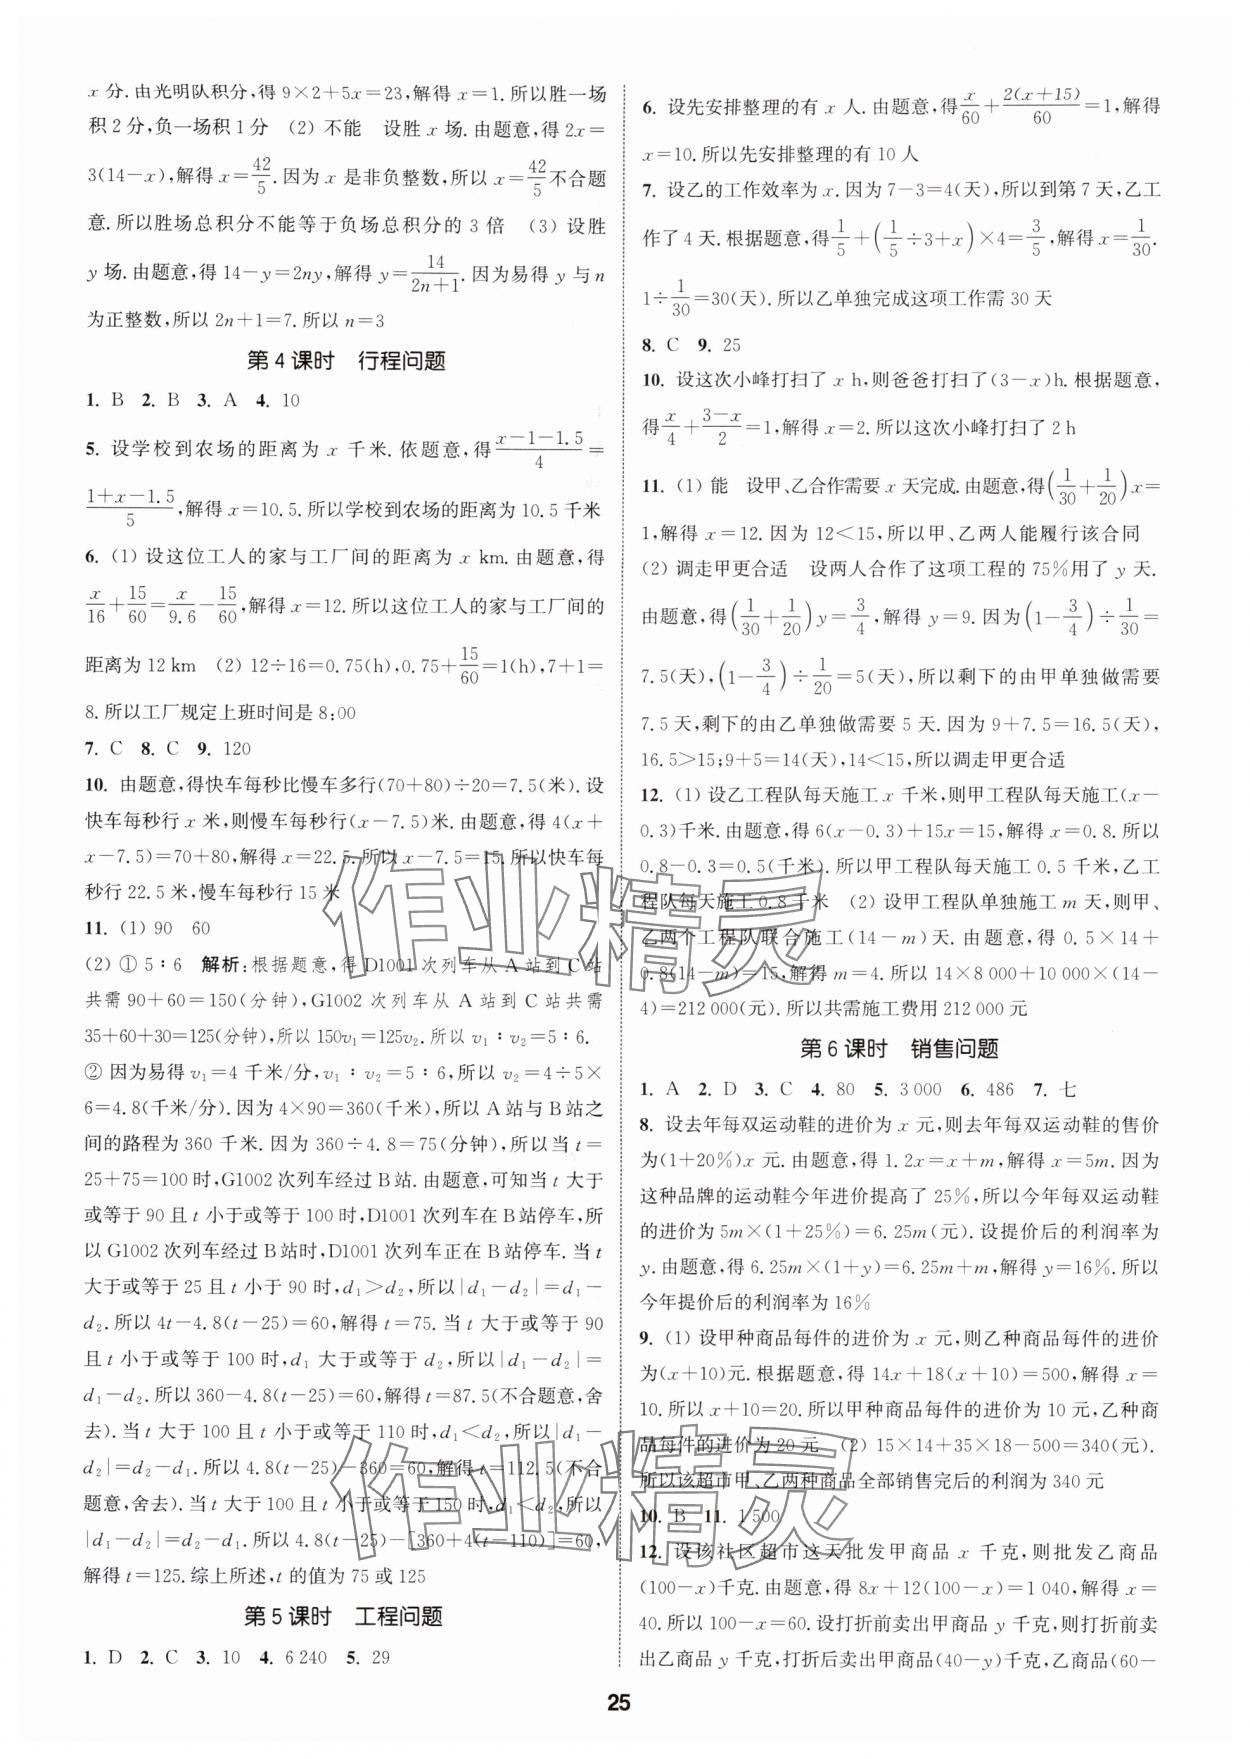 x 分. 由光明队积分,得 9×2+5x=23,解得 x=1. 所以胜一场
积 2 分,负一场积 1 分 (2) 不能 设胜 x 场. 由题意,得 2x=
3(14-x),解得 x=42/5. 因为 x 是非负整数,所以 x=42/5 不合题
意. 所以胜场总积分不能等于负场总积分的 3 倍 (3) 设胜
y 场. 由题意,得 14-y=2ny,解得 y=14/(2n+1). 因为易得 y 与 n
为正整数,所以 2n+1=7. 所以 n=3
第 4 课时 行程问题
1. B 2. B 3. A 4. 10
5. 设学校到农场的距离为 x 千米. 依题意,得(x-1-1.5)/4=
(1+x-1.5)/5,解得 x=10.5. 所以学校到农场的距离为 10.5 千米
6. (1) 设这位工人的家与工厂间的距离为 x km. 由题意,得
x/16+15/60=x/9.6-15/60,解得 x=12. 所以这位工人的家与工厂间的
距离为 12 km (2) 12÷16=0.75(h),0.75+15/60=1(h),7+1=
8. 所以工厂规定上班时间是 8:00
7. C 8. C 9. 120
10. 由题意,得快车每秒比慢车多行(70+80)÷20=7.5(米). 设
快车每秒行 x 米,则慢车每秒行(x-7.5)米. 由题意,得 4(x+
x-7.5)=70+80,解得 x=22.5. 所以 x-7.5=15. 所以快车每
秒行 22.5 米,慢车每秒行 15 米
11. (1) 90 60
(2) ① 5∶6 解析:根据题意,得 D1001 次列车从 A 站到 C 站
共需 90+60=150(分钟),G1002 次列车从 A 站到 C 站共需
35+60+30=125(分钟),所以 150v₁=125v₂. 所以 v₁∶v₂=5∶6.
② 因为易得 v₁=4 千米/分,v₁∶v₂=5∶6,所以 v₂=4÷5×
6=4.8(千米/分). 因为 4×90=360(千米),所以 A 站与 B 站之
间的路程为 360 千米. 因为 360÷4.8=75(分钟),所以当 t=
25+75=100 时,G1002 次列车经过 B 站. 由题意,可知当 t 大于
或等于 90 且 t 小于或等于 100 时,D1001 次列车在 B 站停车,所
以 G1002 次列车经过 B 站时,D1001 次列车正在 B 站停车. 当 t
大于或等于 25 且 t 小于 90 时,d₁>d₂,所以|d₁-d₂|=d₁-
d₂. 所以 4t-4.8(t-25)=60,解得 t=75. 当 t 大于或等于 90
且 t 小于或等于 100 时,d₁ 大于或等于 d₂,所以|d₁-d₂|=
d₁-d₂. 所以 360-4.8(t-25)=60,解得 t=87.5(不合题意,舍
去). 当 t 大于 100 且 t 小于或等于 110 时,d₁<d₂,所以|d₁-
d₂|=d₂-d₁. 所以 4.8(t-25)-360=60,解得 t=112.5(不合
题意,舍去). 当 t 大于 100 且 t 小于或等于 150 时,d₁<d₂,所以
|d₁-d₂|=d₂-d₁. 所以 4.8(t-25)-[360+4(t-110)]=60,
解得 t=125. 综上所述,t 的值为 75 或 125
第 5 课时 工程问题
1. D 2. C 3. 10 4. 6 240 5. 29
6. 设先安排整理的有 x 人. 由题意,得x/60+2(x+15)/60=1,解得
x=10. 所以先安排整理的有 10 人
7. 设乙的工作效率为 x. 因为 7-3=4(天),所以到第 7 天,乙工
作了 4 天. 根据题意,得1/5+(1/5÷3+x)×4=3/5,解得 x=1/30.
1÷1/30=30(天). 所以乙单独完成这项工作需 30 天
8. C 9. 25
10. 设这次小峰打扫了 x h,则爸爸打扫了(3-x)h. 根据题意,
得x/4+(3-x)/2=1,解得 x=2. 所以这次小峰打扫了 2 h
11. (1) 能 设甲、乙合作需要 x 天完成. 由题意,得(1/30+1/20)x=
1,解得 x=12. 因为 12<15,所以甲、乙两人能履行该合同
(2) 调走甲更合适 设两人合作了这项工程的 75%用了 y 天.
由题意,得(1/30+1/20)y=3/4,解得 y=9. 因为(1-3/4)÷1/30=
7.5(天),(1-3/4)÷1/20=5(天),所以剩下的由甲单独做需要
7.5 天,剩下的由乙单独做需要 5 天. 因为 9+7.5=16.5(天),
16.5>15;9+5=14(天),14<15,所以调走甲更合适
12. (1) 设乙工程队每天施工 x 千米,则甲工程队每天施工(x-
0.3)千米. 由题意,得 6(x-0.3)+15x=15,解得 x=0.8. 所以
0.8-0.3=0.5(千米). 所以甲工程队每天施工 0.5 千米,乙工
程队每天施工 0.8 千米 (2) 设甲工程队单独施工 m 天,则甲、
乙两个工程队联合施工(14-m)天. 由题意,得 0.5×14+
0.8(14-m)=15,解得 m=4. 所以 14×8 000+10 000×(14-
4)=212 000(元). 所以共需施工费用 212 000 元
第 6 课时 销售问题
1. A 2. D 3. C 4. 80 5. 3 000 6. 486 7. 七
8. 设去年每双运动鞋的进价为 x 元,则去年每双运动鞋的售价
为(1+20%)x 元. 由题意,得 1.2x=x+m,解得 x=5m. 因为
这种品牌的运动鞋今年进价提高了 25%,所以今年每双运动鞋
的进价为 5m×(1+25%)=6.25m(元). 设提价后的利润率为
y. 由题意,得 6.25m×(1+y)=6.25m+m,解得 y=16%. 所以
今年提价后的利润率为 16%
9. (1) 设甲种商品每件的进价为 x 元,则乙种商品每件的进价
为(x+10)元. 根据题意,得 14x+18(x+10)=500,解得 x=
10. 所以 x+10=20. 所以甲种商品每件的进价为 10 元,乙种商
品每件的进价为 20 元 (2) 15×14+35×18-500=340(元).
所以该超市甲、乙两种商品全部销售完后的利润为 340 元
10. B 11. 1 500
12. 设该社区超市这天批发甲商品 x 千克,则批发乙商品
(100-x)千克. 由题意,得 8x+12(100-x)=1 040,解得 x=
40. 所以 100-x=60. 设打折前卖出甲商品 y 千克,则打折前卖
出乙商品 y 千克,打折后卖出甲商品(40-y)千克,乙商品(60-
25
作业精灵
作业精灵